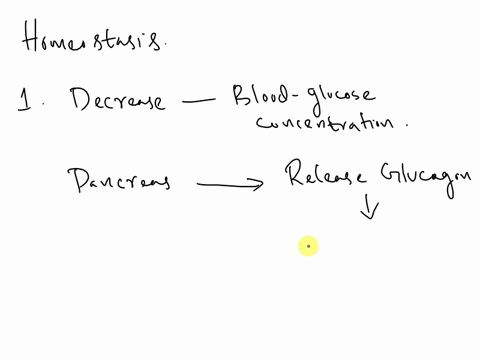 Homeostasis.
1. Decrease — Blood-glucose
concentration.
Pancreas → Release Glucagon
↓